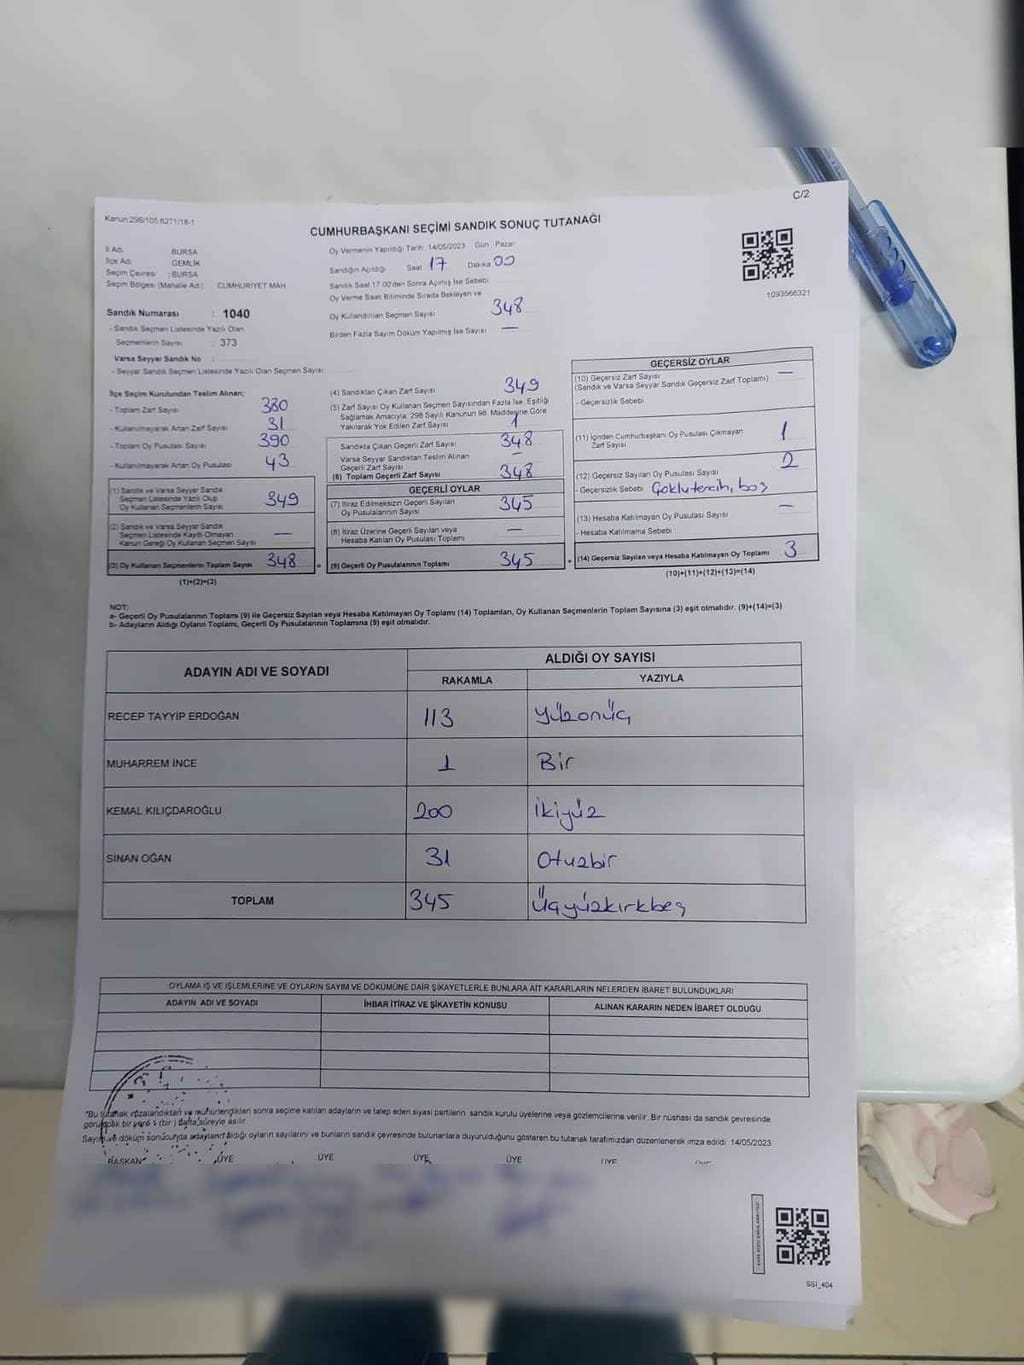 C/2
Kanun:298/105,6271/18-1
CUMHURBAŞKANI SEÇİMİ SANDIK SONUÇ TUTANAĞI
İl Adı BURSA
İlçe Adı GEMLİK
Seçim Çevresi : BURSA
Seçim Bölgesi (Mahalle Adı) CUMHURİYET MAH
Sandık Numarası : 1040
- Sandık Seçmen Listesinde Yazılı Olan
Seçmenlerin Sayısı : 373
Varsa Seyyar Sandık No :
- Seyyar Sandık Seçmen Listesinde Yazılı Olan Seçmen Sayısı :
Oy Vermenin Yapıldığı Tarih 14/05/2023 Gün : Pazar
Sandığın Açıldığı Saat 17 Dakika 00
Sandık Saat 17.00'den Sonra Açılmış İse Sebebi
Oy Verme Saati Bitiminde Sırada Bekleyen ve
Oy Kullandırılan Seçmen Sayısı 348
Birden Fazla Sayım Döküm Yapılmış İse Sayısı —
1093566321
İlçe Seçim Kurulundan Teslim Alınan;
- Toplam Zarf Sayısı 380
- Kullanılmayarak Artan Zarf Sayısı 31
- Toplam Oy Pusulası Sayısı 390
- Kullanılmayarak Artan Oy Pusulası 43
(1) Sandık ve Varsa Seyyar Sandık
Seçmen Listesinde Yazılı Olup
Oy Kullanan Seçmenlerin Sayısı 349
(2) Sandık ve Varsa Seyyar Sandık
Seçmen Listesinde Kaydı Olmayan
Kanun Gereği Oy Kullanan Seçmen Sayısı —
(3) Oy Kullanan Seçmenlerin Toplam Sayısı 348
(1)+(2)=(3)
(4) Sandıktan Çıkan Zarf Sayısı 349
(5) Zarf Sayısı Oy Kullanan Seçmen Sayısından Fazla İse, Eşitliği
Sağlamak Amacıyla; 298 Sayılı Kanunun 98. Maddesine Göre
Yakılarak Yok Edilen Zarf Sayısı 1
Sandıkta Çıkan Geçerli Zarf Sayısı 348
Varsa Seyyar Sandıktan Teslim Alınan
Geçerli Zarf Sayısı —
(6) Toplam Geçerli Zarf Sayısı 348
GEÇERLİ OYLAR
(7) İtiraz Edilmeksizin Geçerli Sayılan
Oy Pusulalarının Sayısı 345
(8) İtiraz Üzerine Geçerli Sayılan veya
Hesaba Katılan Oy Pusulası Toplamı —
(9) Geçerli Oy Pusulalarının Toplamı 345
GEÇERSİZ OYLAR
(10) Geçersiz Zarf Sayısı —
(Sandık ve Varsa Seyyar Sandık Geçersiz Zarf Toplamı)
- Geçersizlik Sebebi
(11) İçinden Cumhurbaşkanı Oy Pusulası Çıkmayan
Zarf Sayısı 1
(12) Geçersiz Sayılan Oy Pusulası Sayısı 2
- Geçersizlik Sebebi Çoklu tercih, boş
(13) Hesaba Katılmayan Oy Pusulası Sayısı —
- Hesaba Katılmama Sebebi
(14) Geçersiz Sayılan veya Hesaba Katılmayan Oy Toplamı 3
(10)+(11)+(12)+(13)=(14)
NOT:
a- Geçerli Oy Pusulalarının Toplamı (9) ile Geçersiz Sayılan veya Hesaba Katılmayan Oy Toplamı (14) Toplamları, Oy Kullanan Seçmenlerin Toplam Sayısına (3) eşit olmalıdır. (9)+(14)=(3)
b- Adayların Aldığı Oyların Toplamı, Geçerli Oy Pusulalarının Toplamına (9) eşit olmalıdır.
ADAYIN ADI VE SOYADI ALDIĞI OY SAYISI
RAKAMLA YAZIYLA
RECEP TAYYİP ERDOĞAN 113 Yüzonüç
MUHARREM İNCE 1 Bir
KEMAL KILIÇDAROĞLU 200 İkiyüz
SİNAN OĞAN 31 Otuzbir
TOPLAM 345 Üçyüzkırkbeş
OYLAMA İŞ VE İŞLEMLERİNE VE OYLARIN SAYIM VE DÖKÜMÜNE DAİR ŞİKAYETLERLE BUNLARA AİT KARARLARIN NELERDEN İBARET BULUNDUKLARI
ADAYIN ADI VE SOYADI İHBAR İTİRAZ VE ŞİKAYETİN KONUSU ALINAN KARARIN NEDEN İBARET OLDUĞU
"Bu tutanak imzalandıktan ve mühürlendikten sonra seçime katılan adayların ve talep eden siyasi partilerin sandık kurulu üyelerine veya gözlemcilerine verilir. Bir nüshası da sandık çevresinde
görülecek bir yere 1 (bir) hafta süreyle asılır.
Sayım ve döküm sonucunda adayların aldığı oyların sayılarını ve bunların sandık çevresinde bulunanlara duyurulduğunu gösteren bu tutanak tarafımızdan düzenlenerek imza edildi. 14/05/2023
BAŞKAN ÜYE ÜYE ÜYE ÜYE ÜYE ÜYE
SSİ_404